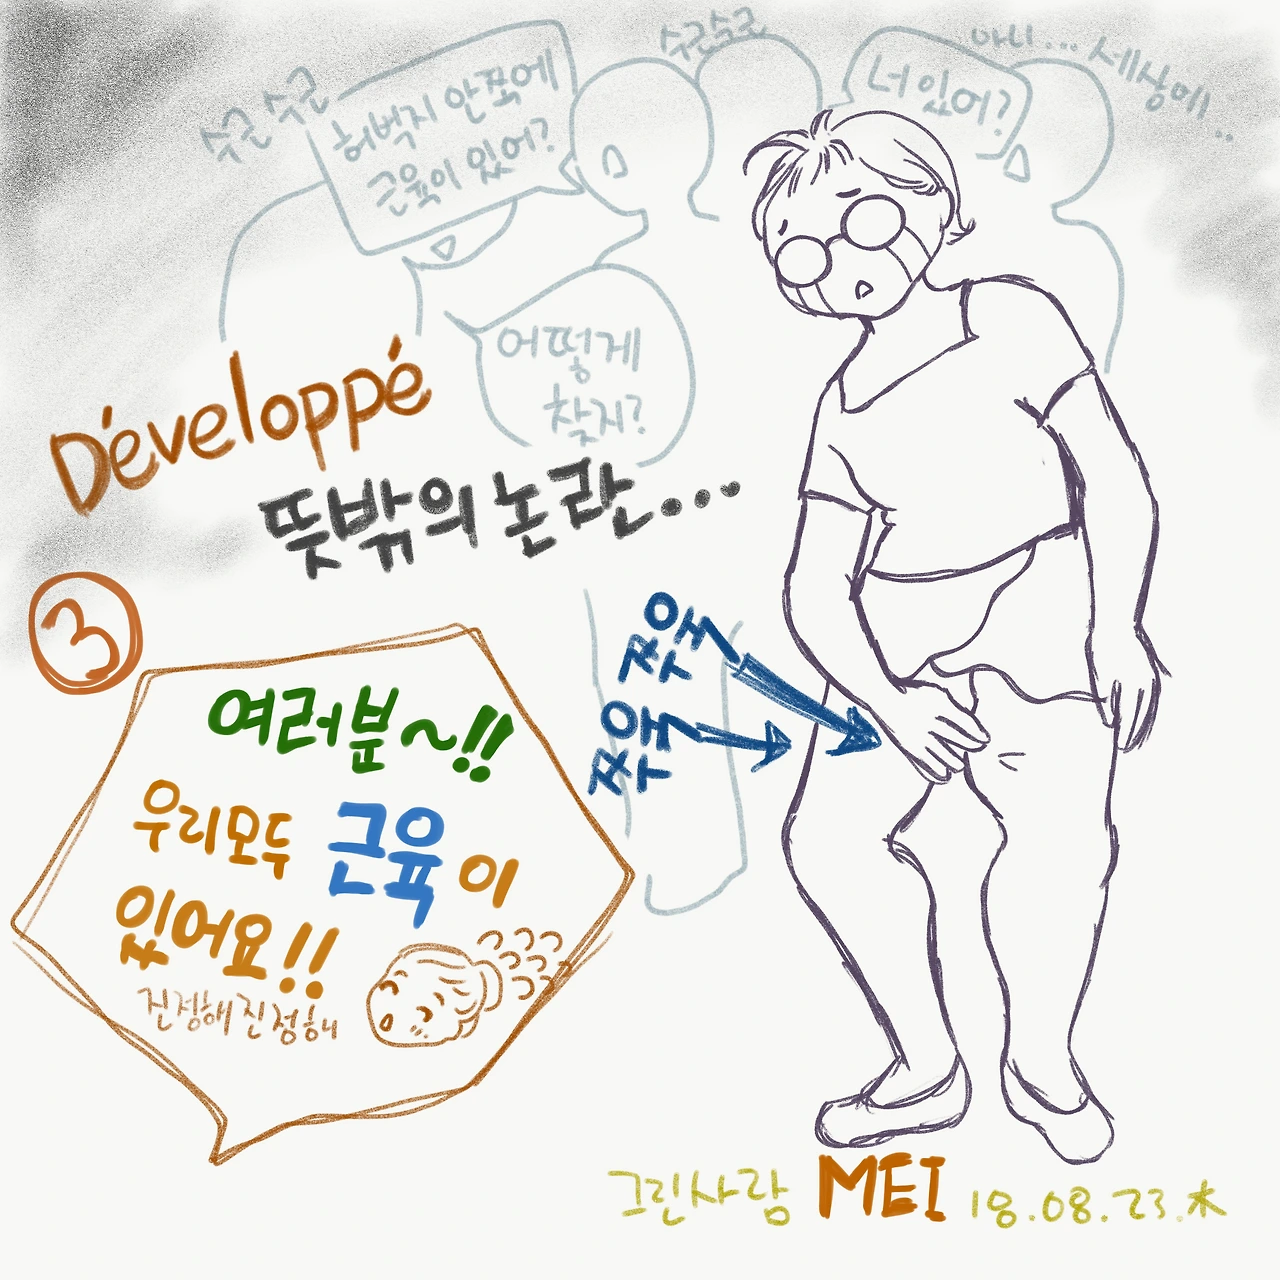 수군수군
허벅지 안쪽에
근육이 있어?
수군수군
너 있어?
아니... 세상에..
어떻게
찾지?
Développé
뜻밖의 논란...
3
여러분~!!
우리모두 근육이
있어요!!
진정해 진정해
그린사람 MEI 18.08.23.木